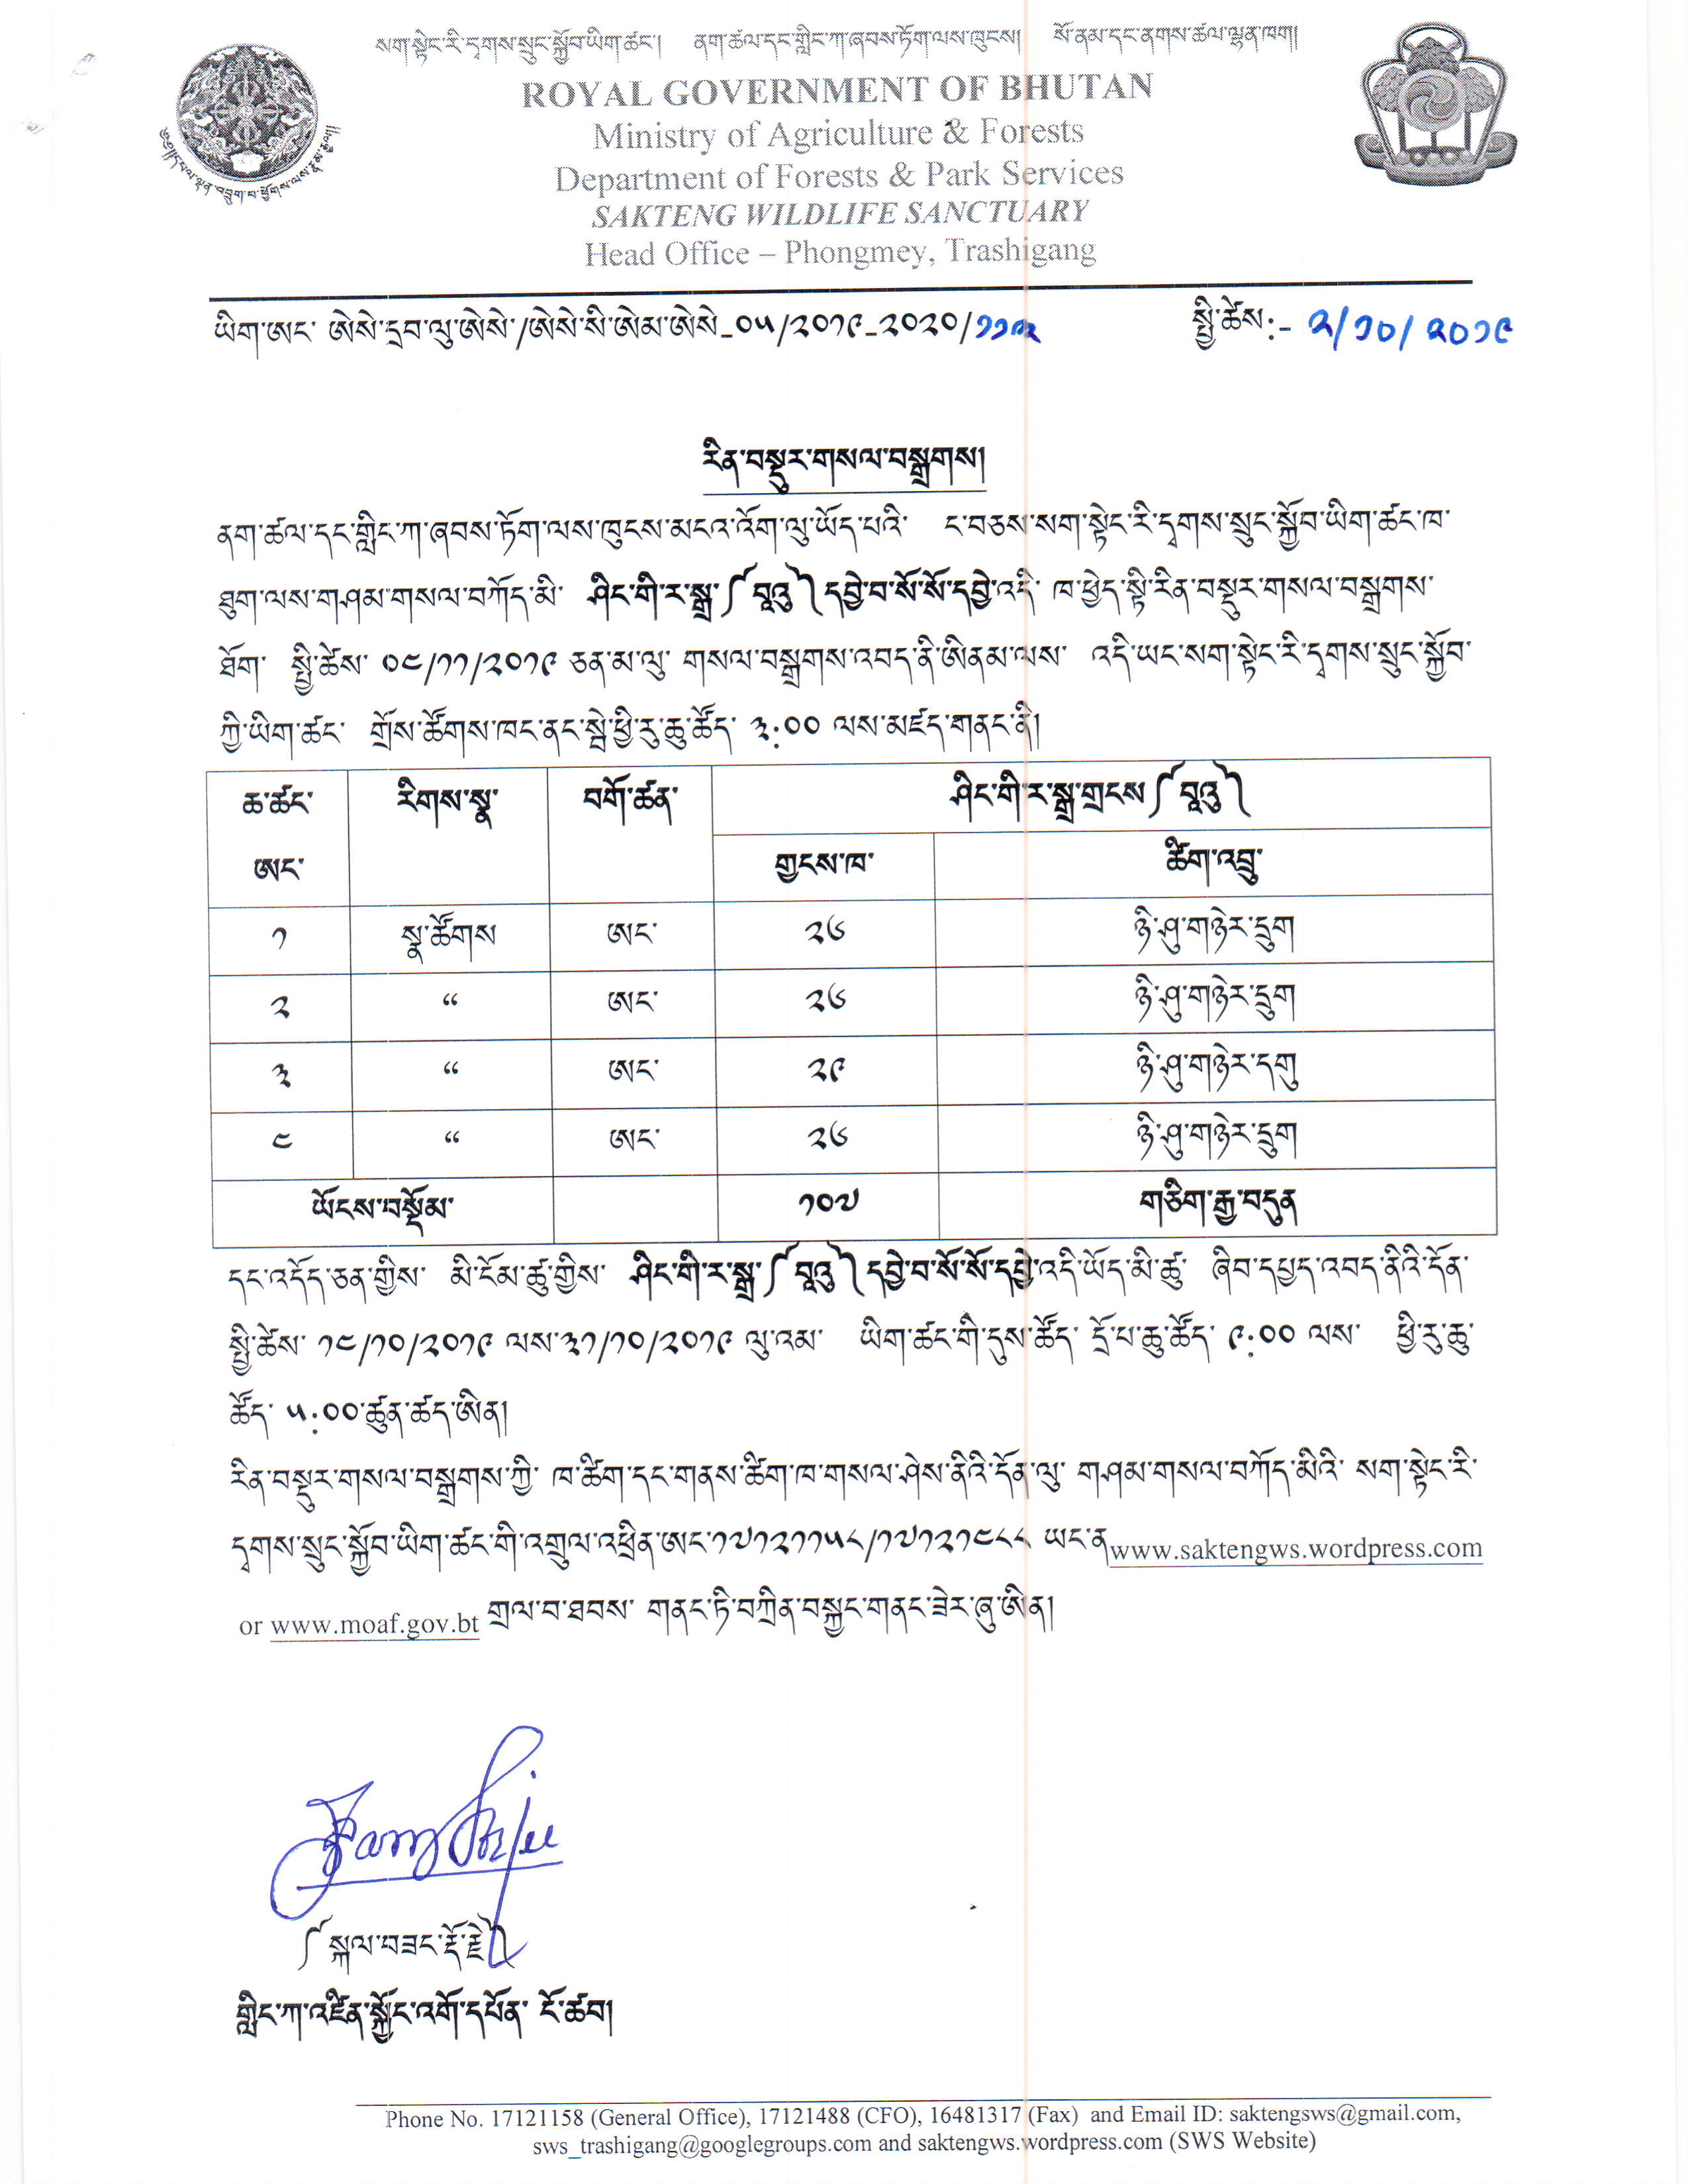 སག་སྟེང་རི་དྭགས་སྲུང་སྐྱོབ་ཡིག་ཚང་། ནག་ཚལ་དང་གླིང་ཀ་ཞབས་ཏོག་ལས་ཁུངས། སོ་ནམ་དང་ནགས་ཚལ་ལྷན་ཁག།
ROYAL GOVERNMENT OF BHUTAN
Ministry of Agriculture & Forests
Department of Forests & Park Services
SAKTENG WILDLIFE SANCTUARY
Head Office – Phongmey, Trashigang
ཡིག་ཨང་ ཨེསེ་དྲབ་ལུ་ཨེསེ་/ཨེསེ་སི་ཨེམ་ཨེསེ_༠༥/༢༠༡༩_༢༠༢༠/
སྤྱི་ཚེས:- ༢/༡༠/༢༠༡༩
རིན་བསྡུར་གསལ་བསྒྲགས།
ནག་ཚལ་དང་གླིང་ཀ་ཞབས་ཏོག་ལས་ཁུངས་མངའ་འོག་ལུ་ཡོད་པའི་ ང་བཅས་སག་སྟེང་རི་དྭགས་སྲུང་སྐྱོབ་ཡིག་ཚང་ཁ་
ཐུག་ལས་གཤམ་གསལ་བཀོད་མི་ ཤིང་གི་ར་སྒྲ་༼ བཱའུ་༽དབྱེ་བ་སོ་སོ་དབྱེ་འདི་ ཁ་ཕྱེད་སྟི་རིན་བསྡུར་གསལ་བསྒྲགས་
ཐོག་ སྤྱི་ཚེས་ ༠༤/༡༡/༢༠༡༩ ཅན་མ་ལུ་ གསལ་བསྒྲགས་འབད་ནི་ཨིནམ་ལས་ འདི་ཡང་སག་སྟེང་རི་དྭགས་སྲུང་སྐྱོབ་
ཀྱི་ཡིག་ཚང་ གྲོས་ཚོགས་ཁང་ནང་སྦེ་ཕྱི་རུ་ཆུ་ཚོད་ ༣:༠༠ ལས་མཛད་གནང་ནི།
ཆ་ཚང་ རིགས་སྣ་ བགོ་ཚན་ ཤིང་གི་ར་སྒྲ་གྲངས་༼ བཱའུ་༽
ཨང་ གྱངས་ཁ་ ཚིག་འབྲུ་
༡ སྣ་ཚོགས ཨང་ ༢༦ ཉི་ཤུ་གཉེར་དྲུག
༢ “ ཨང་ ༢༦ ཉི་ཤུ་གཉེར་དྲུག
༣ “ ཨང་ ༢༩ ཉི་ཤུ་གཉེར་དགུ
༤ “ ཨང་ ༢༦ ཉི་ཤུ་གཉེར་དྲུག
ཡོངས་བསྡོམ་ ༡༠༧ གཅིག་རྒྱ་བདུན
དང་འདོད་ཅན་གྱིས་ མི་ངོམ་ཚུ་གྱིས་ ཤིང་གི་ར་སྒྲ་༼ བཱའུ་༽དབྱེ་བ་སོ་སོ་དབྱེ་འདི་ཡོད་མི་ཚུ་ ཞིབ་དཔྱད་འབད་ནིའི་དོན་
སྤྱི་ཚེས་ ༡༤/༡༠/༢༠༡༩ ལས་༣༡/༡༠/༢༠༡༩ ལུ་འམ་ ཡིག་ཚང་གི་དུས་ཚོད་ དྲོ་པ་ཆུ་ཚོད་ ༩:༠༠ ལས་ ཕྱི་རུ་ཆུ་
ཚོད་ ༥:༠༠་ཚུན་ཚད་ཨིན།
རིན་བསྡུར་གསལ་བསྒྲགས་ཀྱི་ ཁ་ཚིག་དང་གནས་ཚིག་ཁ་གསལ་ཤེས་ནིའི་དོན་ལུ་ གཤམ་གསལ་བཀོད་མིའི་ སག་སྟེང་རི་
དྭགས་སྲུང་སྐྱོབ་ཡིག་ཚང་གི་འགྲུལ་འཕྲིན་ཨང་༡༧༡༢༡༡༥༨/༡༧༡༢༡༤༨༨ ཡང་ན་www.saktengws.wordpress.com
or www.moaf.gov.bt གྲལ་བ་ཐབས་ གནང་ཏི་བཀྲིན་བསྐྱང་གནང་ཟེར་ཞུ་ཨིན།
༼ སྐལ་བཟང་རྡོ་རྗེ་༽
གླིང་ཀ་འཛིན་སྐྱོང་འགོ་དཔོན་ ངོ་ཚབ།
Phone No. 17121158 (General Office), 17121488 (CFO), 16481317 (Fax) and Email ID: saktengsws@gmail.com,
sws_trashigang@googlegroups.com and saktengws.wordpress.com (SWS Website)